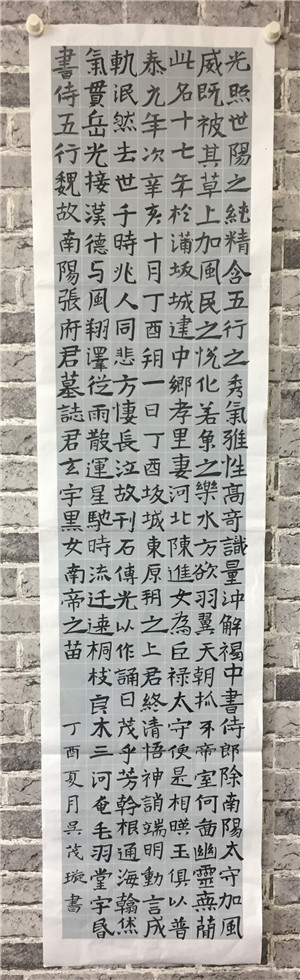 光照世陽之純精含五行之秀氣雅性高奇識量沖解褐中書侍郎除南陽太守加風
威既被其草上加風民之悅化若魚之樂水方欲羽翼天朝抓牙帝室何啚幽靈無蕳
此名十七年於蒲坂城建中鄉孝里妻河北陳進女為巨祿太守便是相暎王俱以普
泰元年次辛亥十月丁酉朔一日丁酉坂城東原朔之上君終清悟神誚端明動言成
軌泯然去世于時兆人同悲方悽長泣故刊石傳光以作誦曰茂乎芳幹根通海翰烋
氣貫岳光接漢德与風翔澤從雨散運星馳時流迁速桐枝良木三河奄毛羽堂宇昏
書侍五行魏故南陽張府君墓誌君玄字黑女南帝之苗
丁酉夏月吳茂璇書